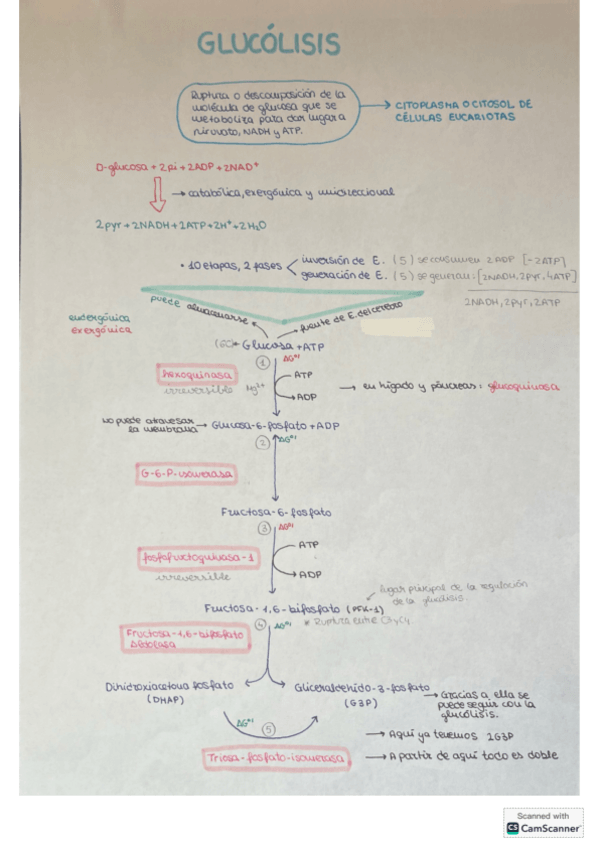 GLUCÓLISIS
Ruptura o descomposición de la
molécula de glucosa que se
metaboliza para dar lugar a
piruvato, NADH y ATP.
CITOPLASMA O CITOSOL DE
CÉLULAS EUCARIOTAS
D-glucosa + 2pi + 2ADP + 2NAD⁺
catabólica, exergónica y unidireccional
2pyr + 2NADH + 2ATP + 2H⁺ + 2H₂O
• 10 etapas, 2 fases
inversión de E. (5) se consumen 2ADP [-2ATP]
generación de E. (5) se generan: [2NADH, 2pyr, 4ATP]
2NADH, 2pyr, 2ATP
puede almacenarse
fuente de E. del cerebro
endergónica
exergónica
(6C) Glucosa + ATP
1 ΔG°'
hexoquinasa
irreversible
Mg²⁺
ATP
ADP
en hígado y páncreas: glucoquinasa
no puede atravesar
la membrana
Glucosa-6-fosfato + ADP
2 ΔG°'
G-6-P-isomerasa
Fructosa-6-fosfato
3 ΔG°'
fosfofructoquinasa-1
irreversible
ATP
ADP
lugar principal de la regulación
de la glucólisis.
Fructosa-1,6-bifosfato (PFK-1)
4 ΔG°'
* Ruptura entre C₃ y C₄
Fructosa-1,6-bifosfato
aldolasa
Dihidroxiacetona fosfato
(DHAP)
Gliceraldehído-3-fosfato
(G3P)
Gracias a ella se
puede seguir con la
glucólisis.
ΔG°' 5
Triosa-fosfato-isomerasa
Aquí ya tenemos 2G3P
A partir de aquí todo es doble
Scanned with
CS CamScanner